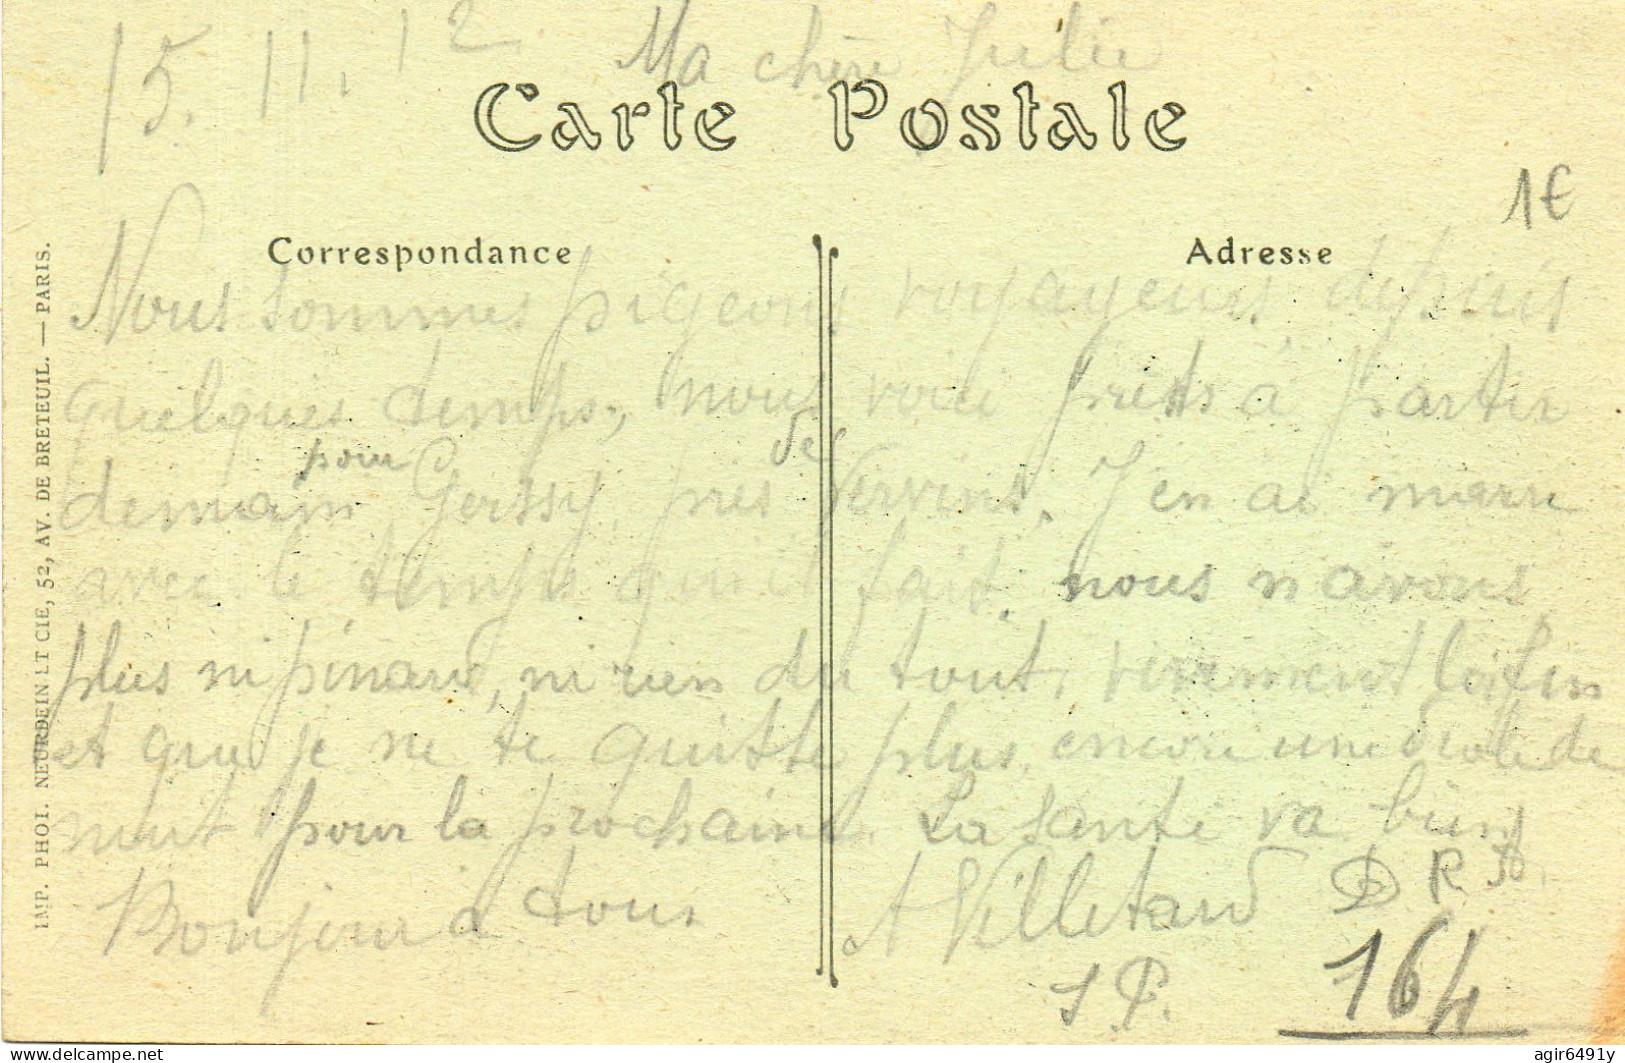 15. 11. 12 Ma chère Julie
Carte Postale
1€
Correspondance
Adresse
Nous sommes pigeons voyageurs depuis
quelques temps, nous voici prets à partir
demain pour Gerssy, près de Vervins. J'en ai marre
avec le temps qu'il fait. nous n'avons
plus ni pinard, ni rien du tout, vivement la fin
et que je ne te quitte plus, encore une de
nuit pour la prochaine. La santé va bien
Bonjour à tous
A Villetard
D
164
IMP. PHOT. NEURDEIN ET CIE, 52, AV. DE BRETEUIL. — PARIS.
delcampe.net
agir6491y